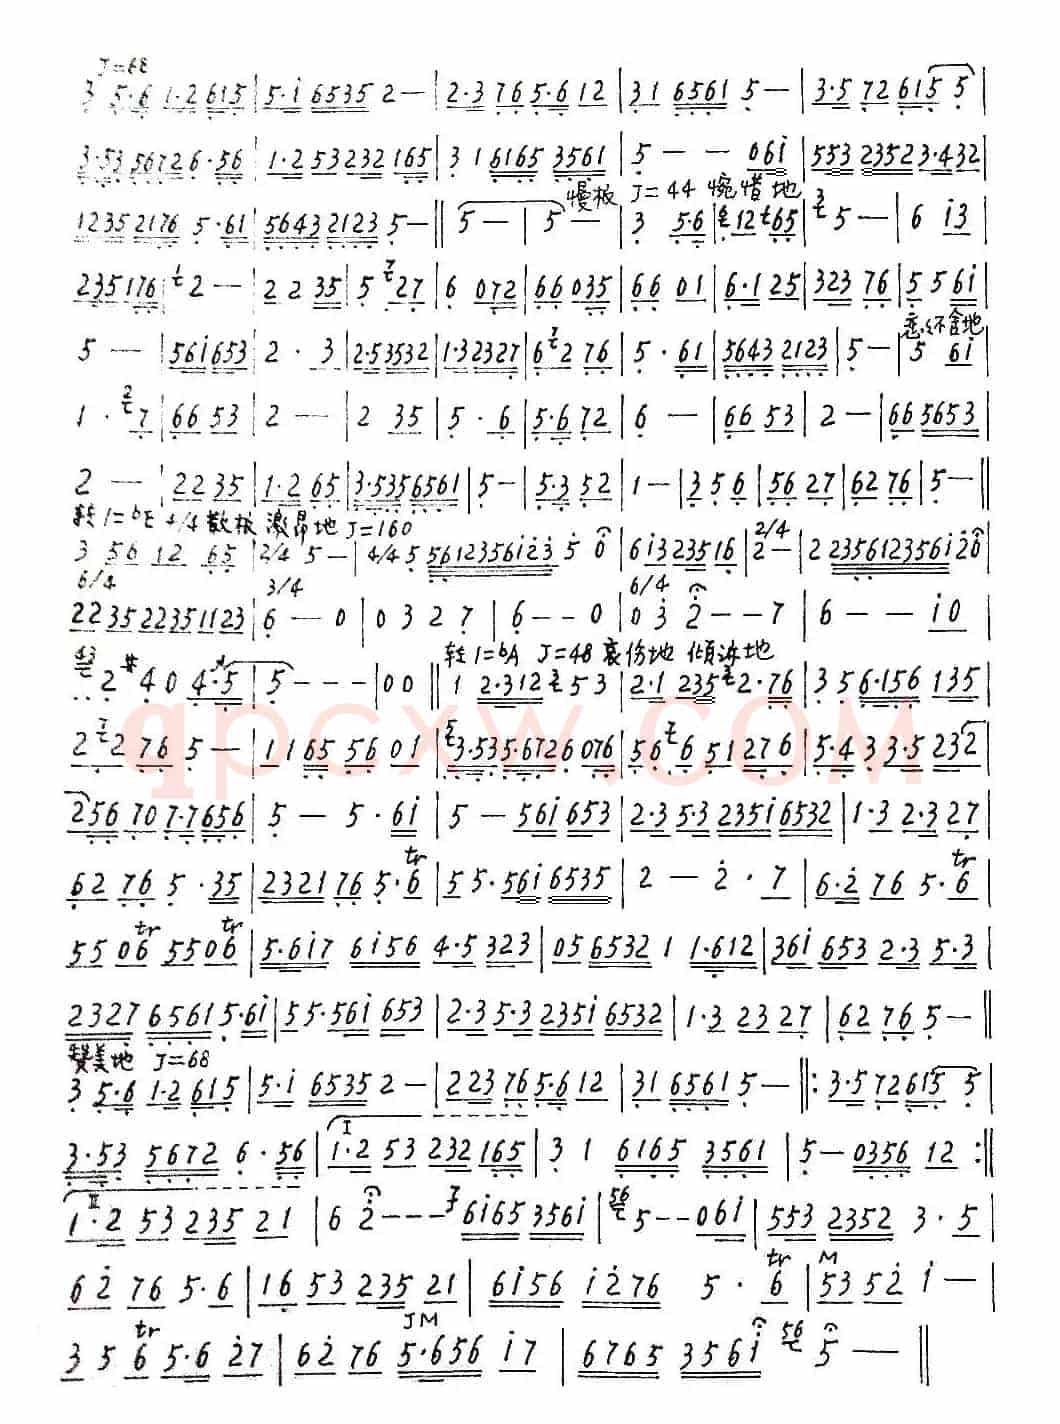 J=68
3 5·6 1·2 615 | 5·i 6535 2 — | 2·3 76 5·6 12 | 31 6561 5 — | 3·5 72 615 5 |
3·53 5672 6·56 | 1·2 53 232 165 | 3 1 6165 3561 | 5 — — 06i | 553 2352 3·432 |
慢板 J=44 惋惜地
1235 2176 5·61 | 5643 2123 5 — || 5 — | 5 — | 3 5·6 | 12 65 | 5 — | 6 i3 |
235176 | 2 — | 2 2 35 | 5 27 | 6 072 | 66 035 | 66 01 | 6·1 25 | 323 76 | 5 5 6i |
5 — | 56i653 | 2 · 3 | 2·53532 | 1·32327 | 6 2 76 | 5 · 61 | 5643 2123 | 5 — | 5 6i |
1 · 7 | 66 53 | 2 — | 2 35 | 5 · 6 | 5·6 72 | 6 — | 66 53 | 2 — | 66 5653 |
2 — | 22 35 | 1·2 65 | 3·5356561 | 5 — | 5·3 52 | 1 — | 3 5 6 | 56 27 | 62 76 | 5 — ||
转1=bE 4/4 散板 激昂地 J=160
3 56 12 65 | 2/4 5 — | 4/4 5 5612356i23 5 0 | 6i323516 | 2/4 2 — | 2 235612356i20 |
6/4 3/4 6/4
223522351123 | 6 — 0 | 0 3 2 7 | 6 — — 0 | 0 3 2 — — 7 | 6 — — i0 |
转1=bA J=48 哀伤地 倾诉地
43 2 #4 0 4·5 | 5 — — — | 0 0 || 1 2·312 5 3 | 2·1 235 2·76 | 3 5 6·156 135 |
2 2 76 5 — | 1 1 65 56 01 | 3·535·6726 076 | 56 6 51 276 | 5·4 3 3·5 232 |
qpcxw.com
256 70 7·7656 | 5 — 5 · 6i | 5 — 56i 653 | 2·3 5·3 235i 6532 | 1·3 2·3 27 |
62 76 5 ·35 | 2321 76 5·tr6 | 5 5·56i 6535 | 2 — 2 · 7 | 6·2 76 5·tr6 |
55 0tr6 55 0tr6 | 5·6i7 6i56 4·5 323 | 05 6532 1 1·612 | 36i 653 2·3 5·3 |
2327 6561 5·6i | 5 5·56i 653 | 2·3 5·3 235i 6532 | 1·3 23 27 | 62 76 5 — ||
赞美地 J=68
3 5·6 1·2 615 | 5·i 6535 2 — | 223 76 5·6 12 | 31 6561 5 — ||: 3·5 72 615 5 |
3·53 5672 6·56 | I 1·2 53 232 165 | 3 1 6165 3561 | 5 — 0356 12 :||
II 1·2 53 235 21 | 6 2 — — — 7 6i65 356i | 56 5 — — 06i | 553 2352 3 · 5 |
62 76 5·6 | 16 53 235 21 | 6i56 i276 5 · tr6 | M 53 52 i — |
3 5 tr6 5·6 27 | 62 76 JM 5·656 i7 | 6765 356i 56 5 — ||